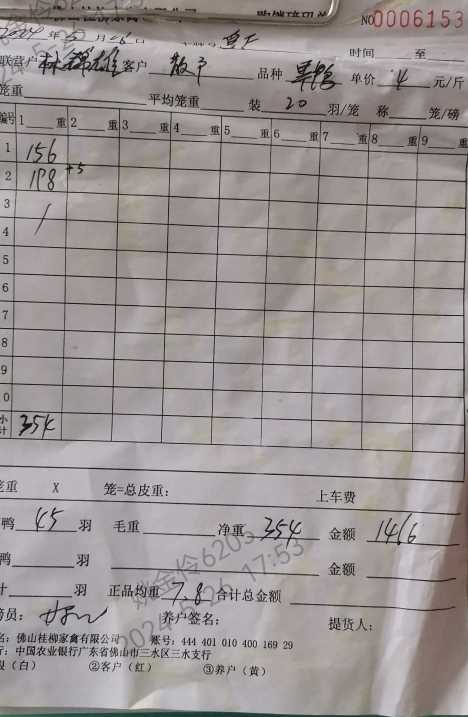 购销码单 NO0006153
2024年
时间 至
联营户 林锦雄 客户 散户 品种 单价 4 元/斤
笼重 平均笼重 装 20 羽/笼 称 笼/磅
编号 1 重 2 重 3 重 4 重 5 重 6 重 7 重 8 重 9 重
1 156
2 198 +5
3
4
5
6
7
8
9
0
小计 354
笼重 X 笼=总皮重: 上车费
鸭 45 羽 毛重 净重 354 金额 1416
鸭 羽 金额
计 羽 正品均重 7.8 合计总金额
员: 养户签名: 提货人:
名: 佛山桂柳家禽有限公司 账号: 444 401 010 400 169 29
行: 中国农业银行广东省佛山市三水区三水支行
(白) ②客户(红) ③养户(黄)
姚金伶6203
26 17:53